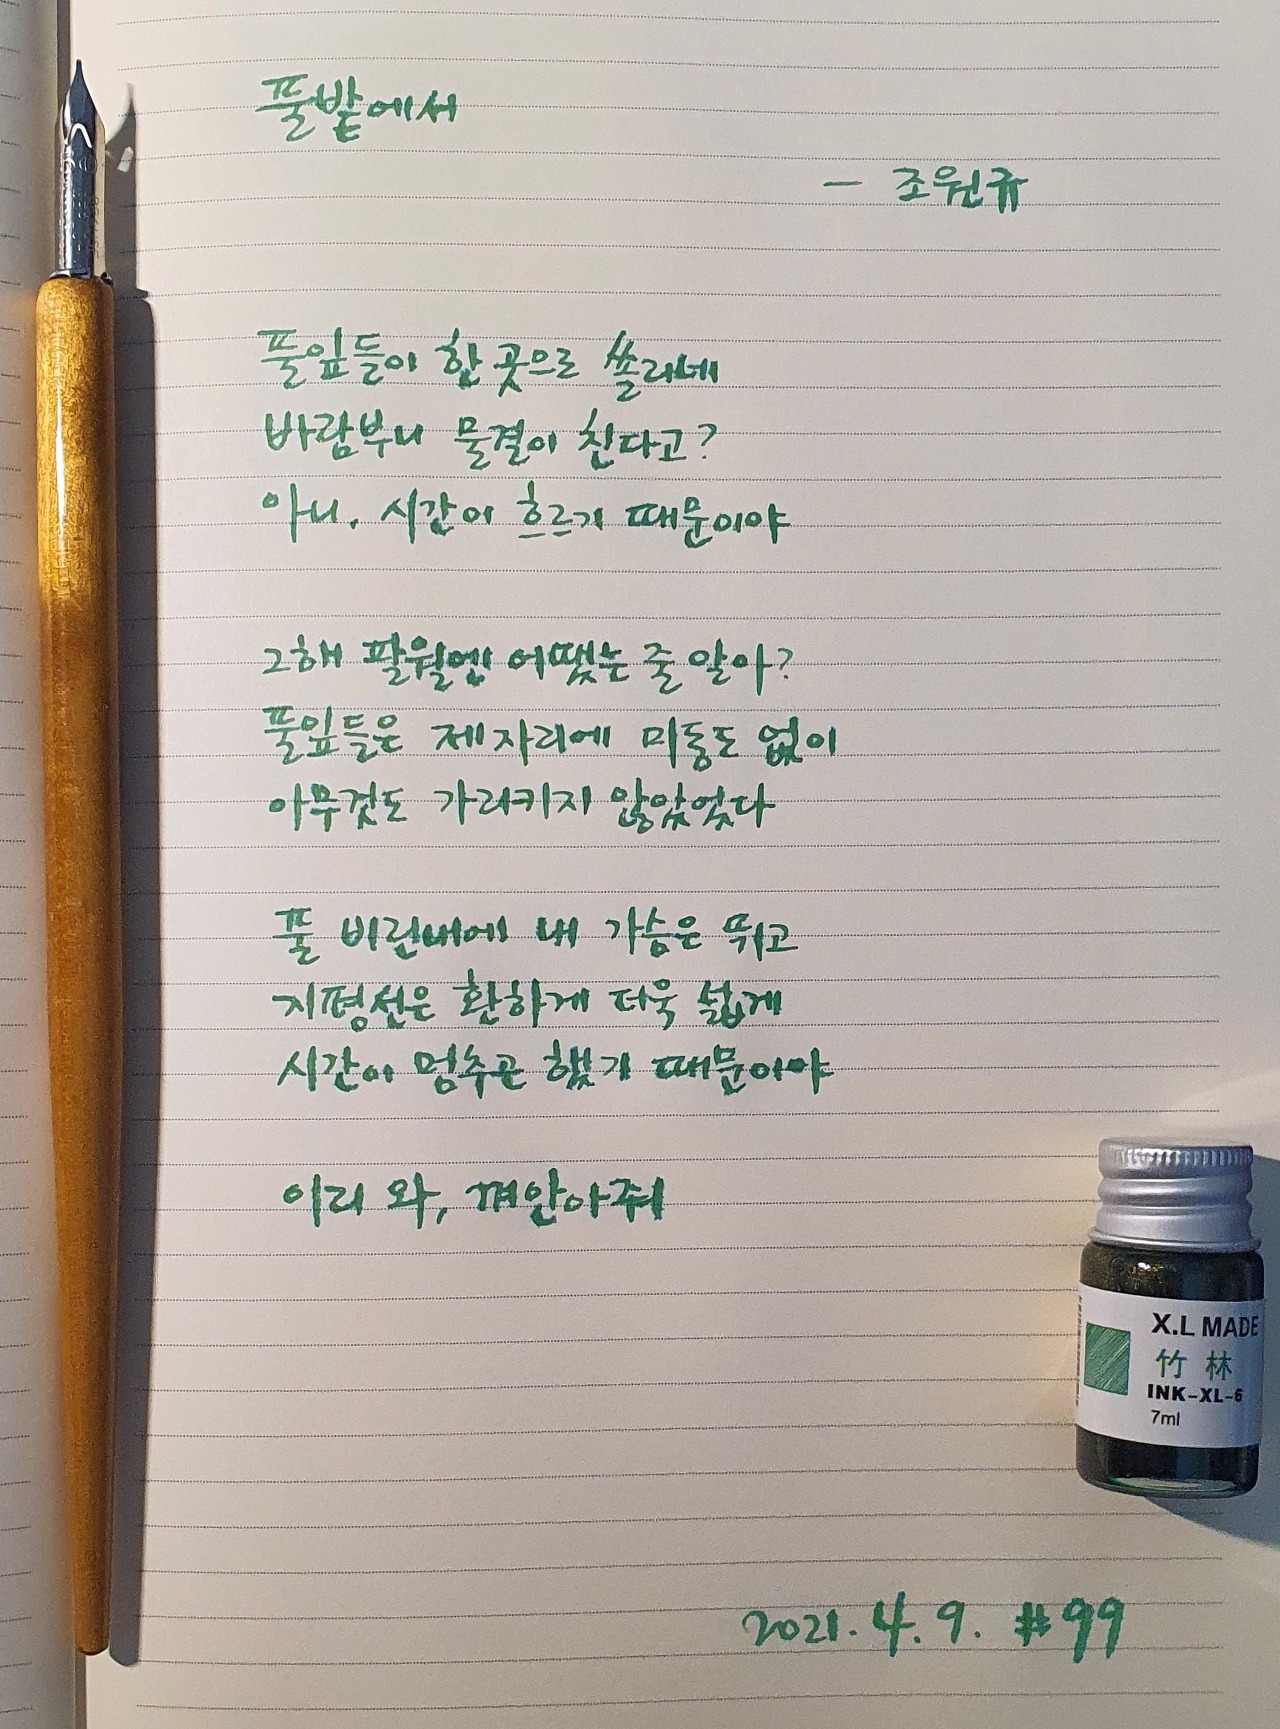 풀밭에서
— 조원규
풀잎들이 한 곳으로 쏠리네
바람부니 물결이 친다고?
아니, 시간이 흐르기 때문이야
그해 팔월엔 어땠는 줄 알아?
풀잎들은 제자리에 미동도 없이
아무것도 가리키지 않았었다
풀 비린내에 내 가슴은 뛰고
지평선은 환하게 더욱 넓게
시간이 멈추곤 했기 때문이야
이리 와, 껴안아줘
X.L MADE
竹林
INK-XL-6
7ml
2021.4.9. #99